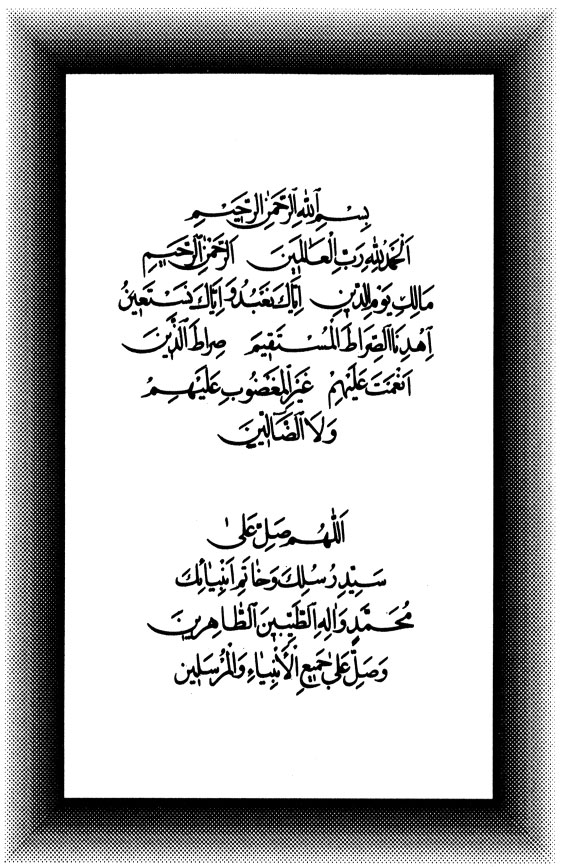 بِسْمِ اللهِ الرَّحْمٰنِ الرَّحِيمِ
اَلْحَمْدُ لِلّٰهِ رَبِّ الْعَالَمِينَ اَلرَّحْمٰنِ الرَّحِيمِ
مَالِكِ يَوْمِ الدِّينِ اِيَّاكَ نَعْبُدُ وَ اِيَّاكَ نَسْتَعِينُ
اِهْدِنَا الصِّرَاطَ الْمُسْتَقِيمَ صِرَاطَ الَّذِينَ
اَنْعَمْتَ عَلَيْهِمْ غَيْرِ الْمَغْضُوبِ عَلَيْهِمْ
وَلَا الضَّالِّينَ
اَللّٰهُمَّ صَلِّ عَلٰى
سَيِّدِ رُسُلِكَ وَخَاتَمِ اَنْبِيَائِكَ
مُحَمَّدٍ وَالِهِ الطَّيِّبِينَ الطَّاهِرِينَ
وَصَلِّ عَلٰى جَمِيعِ الْاَنْبِيَاءِ وَالْمُرْسَلِينَ